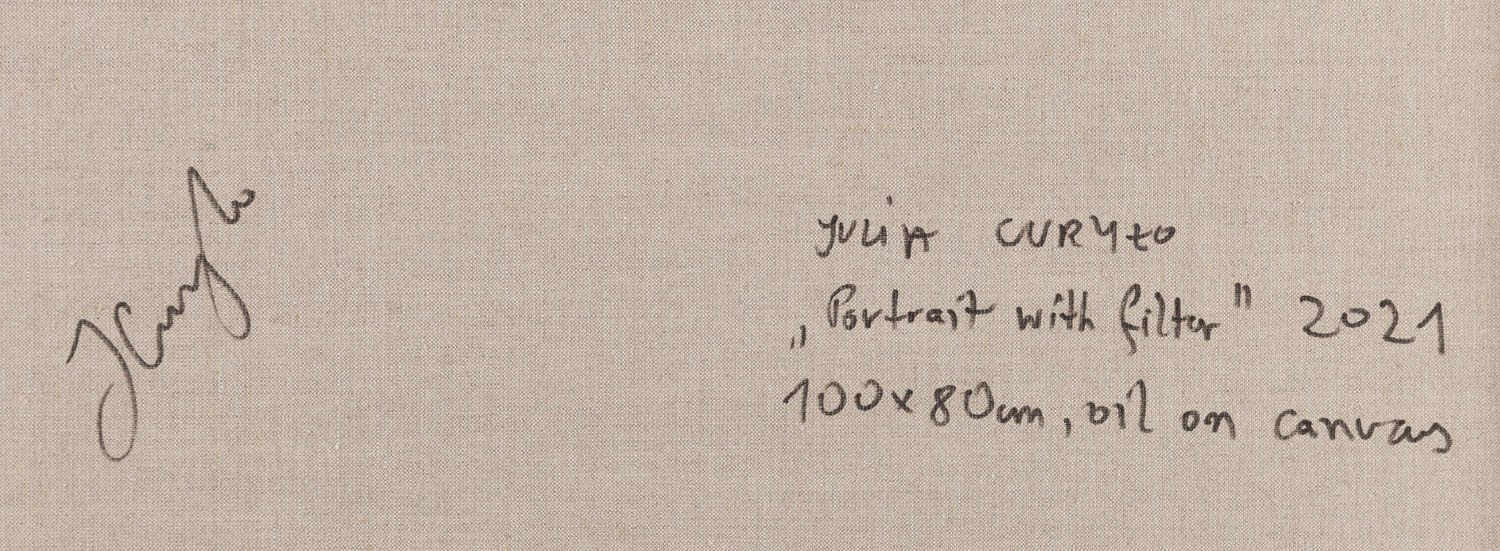 JCuryło
JULIA CURYŁO
„Portrait with filter” 2021
100x80cm, oil on canvas